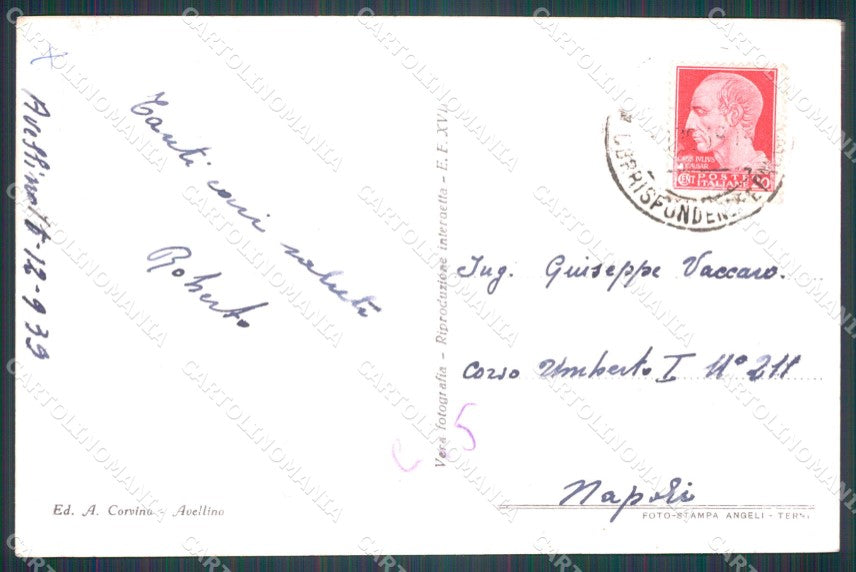 Avellino, 6-12-939
Tanti cari saluti
Roberto
Ed. A. Corvino - Avellino
Vera fotografia - Riproduzione interdetta - E. F. XVII
POSTE
ITALIANE
CENT
CORRISPONDENZE
Ing. Giuseppe Vaccaro.
Corso Umberto I N° 211
Napoli
5
FOTO-STAMPA ANGELI - TERNI
CARTOLINOMANIA